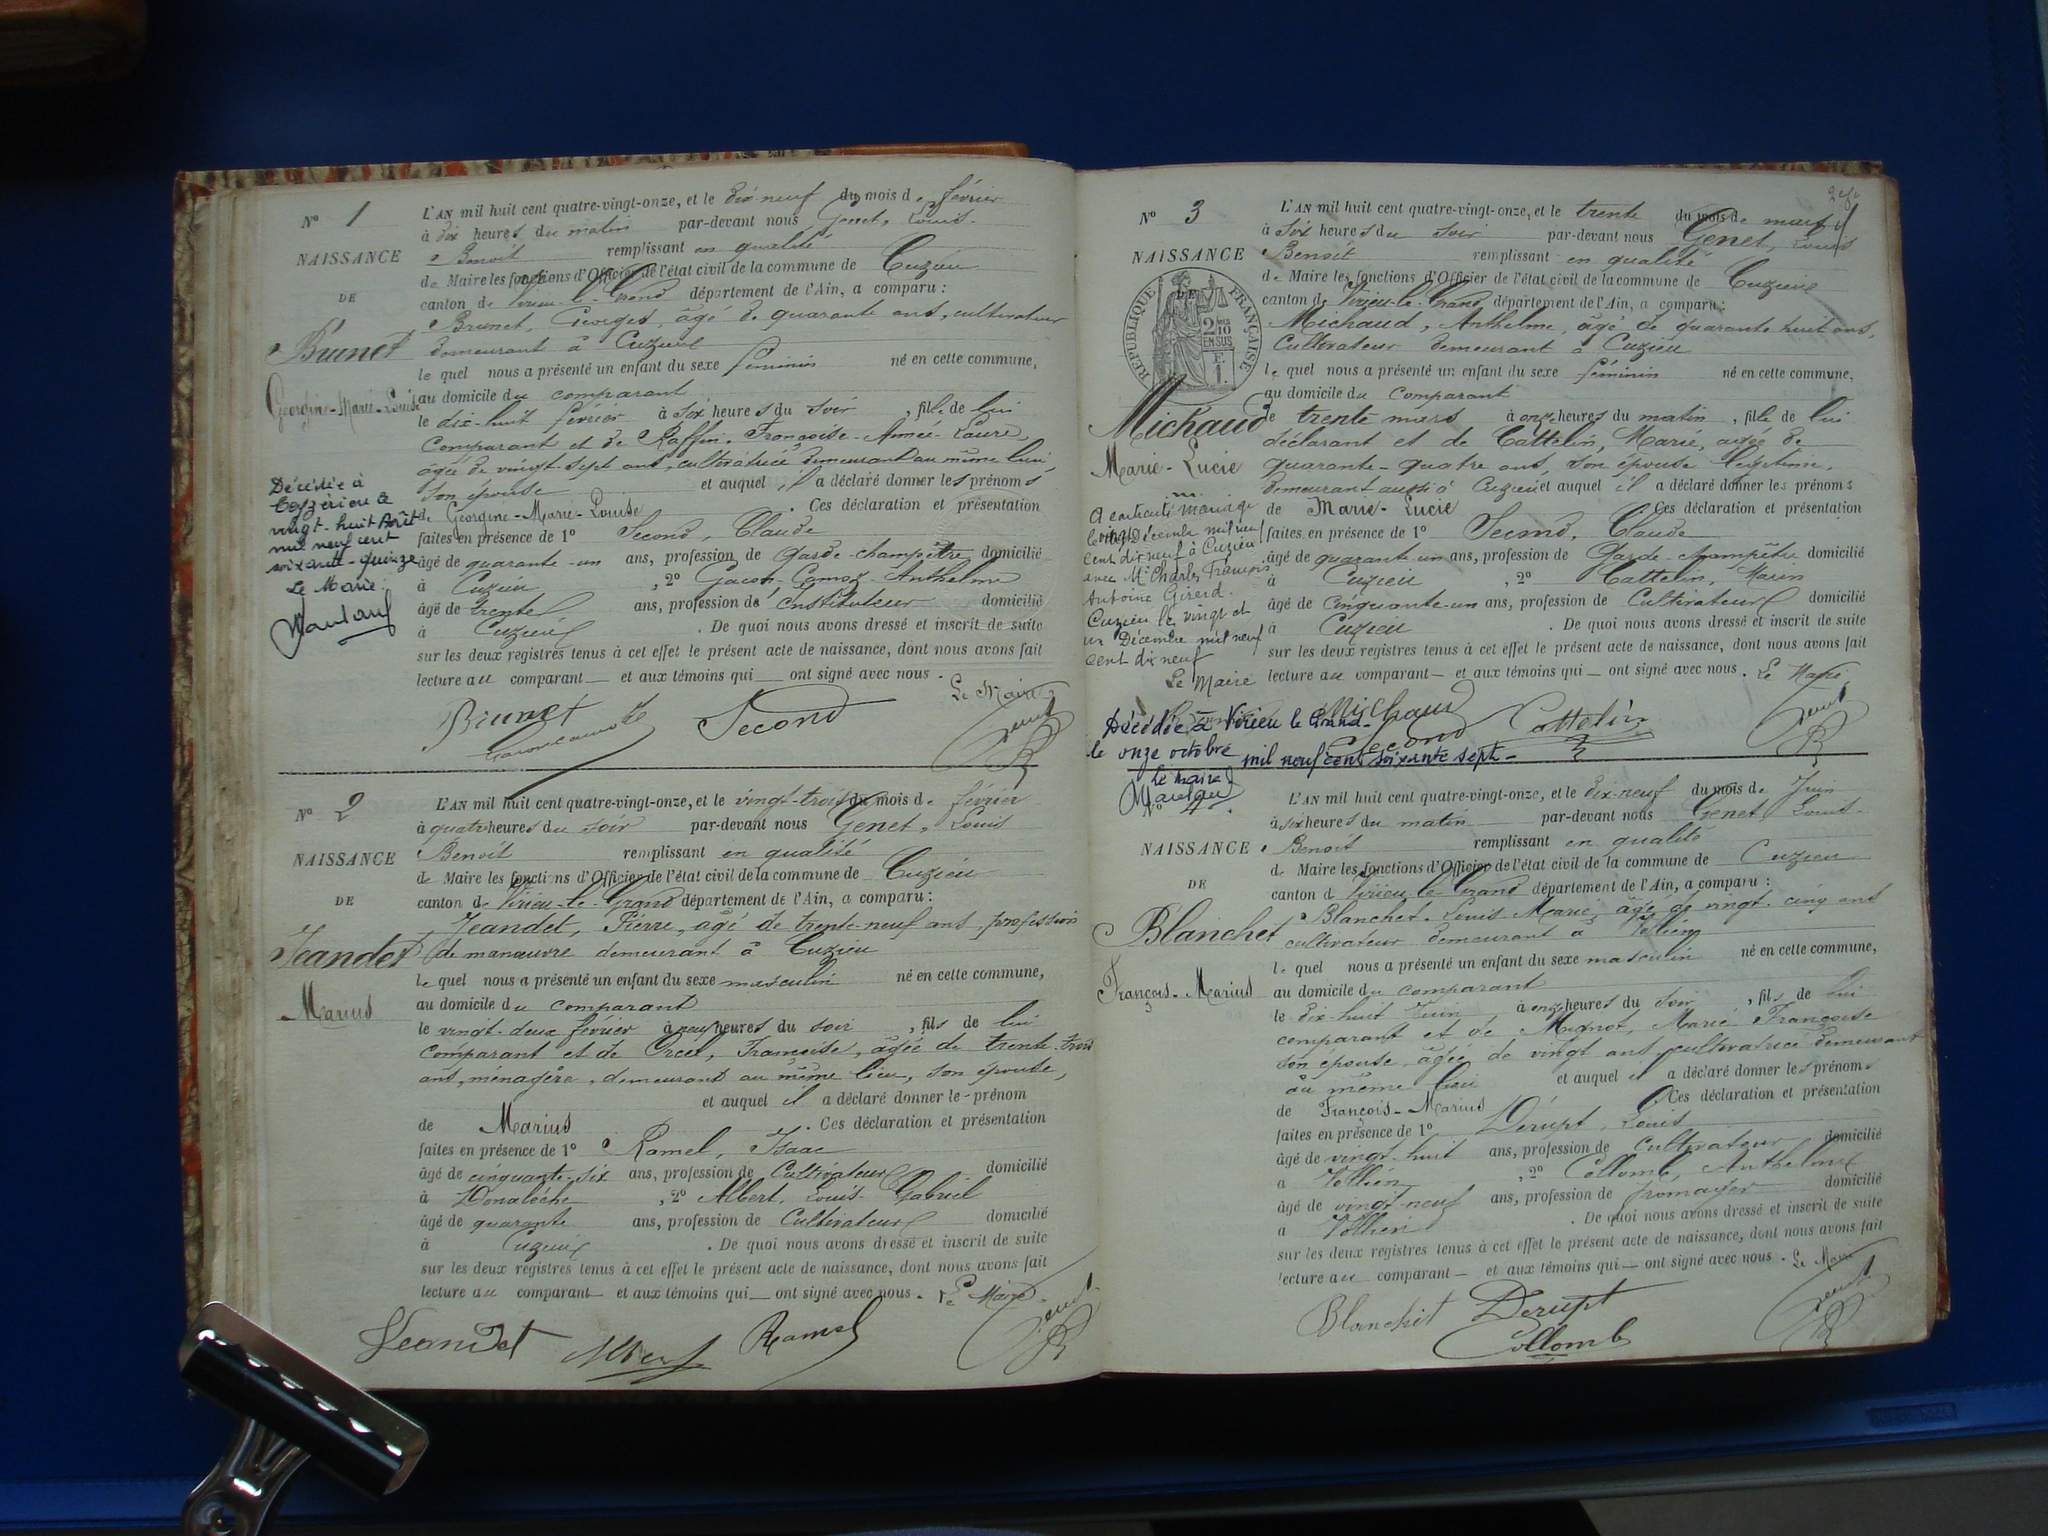 N° 1
NAISSANCE
DE
Brunet
Georgine-Marie-Louise
Décédée à
Ceyzérieu le
vingt-huit Août
mil neuf cent
soixante-quinze
Le Maire
L'AN mil huit cent quatre-vingt-onze, et le dix-neuf du mois de février
à dix heures du matin par-devant nous Genet, Louis-
Benoît remplissant en qualité
de Maire les fonctions d'Officier de l'état civil de la commune de Cuzieu
canton de Virieu-le-Grand département de l'Ain, a comparu :
Brunet, Georges, âgé de quarante ans, cultivateur
demeurant à Cuzieu
lequel nous a présenté un enfant du sexe féminin né en cette commune,
au domicile du comparant
le dix-huit février à six heures du soir, fille de lui
comparant et de Raffin, Françoise-Aimée-Laure,
âgée de vingt-sept ans, cultivatrice demeurant au même lieu,
son épouse et auquel il a déclaré donner les prénoms
de Georgine-Marie-Louise. Ces déclaration et présentation
faites en présence de 1° Second, Claude
âgé de quarante-un ans, profession de garde-champêtre domicilié
à Cuzieu, 2° Anthelme
âgé de trente ans, profession de instituteur domicilié
à Cuzieu. De quoi nous avons dressé et inscrit de suite
sur les deux registres tenus à cet effet le présent acte de naissance, dont nous avons fait
lecture au comparant — et aux témoins qui — ont signé avec nous. Le Maire
Brunet Second
N° 2
NAISSANCE
DE
Jeandet
Marius
L'AN mil huit cent quatre-vingt-onze, et le vingt-trois du mois de février
à quatre heures du soir par-devant nous Genet, Louis
Benoît remplissant en qualité
de Maire les fonctions d'Officier de l'état civil de la commune de Cuzieu
canton de Virieu-le-Grand département de l'Ain, a comparu :
Jeandet, Pierre, âgé de trente-neuf ans, profession
de manœuvre demeurant à Cuzieu
lequel nous a présenté un enfant du sexe masculin né en cette commune,
au domicile du comparant
le vingt-deux février à neuf heures du soir, fils de lui
comparant et de Orcet, Françoise, âgée de trente-trois
ans, ménagère, demeurant au même lieu, son épouse,
et auquel il a déclaré donner le prénom
de Marius. Ces déclaration et présentation
faites en présence de 1° Ramel, Isaac
âgé de cinquante-six ans, profession de Cultivateur domicilié
à 2° Albert, Louis-Gabriel
âgé de quarante ans, profession de Cultivateur domicilié
à Cuzieu. De quoi nous avons dressé et inscrit de suite
sur les deux registres tenus à cet effet le présent acte de naissance, dont nous avons fait
lecture au comparant — et aux témoins qui — ont signé avec nous. Le Maire
Jeandet Albert Ramel
N° 3
NAISSANCE
DE
RÉPUBLIQUE FRANÇAISE
2/10 EN SUS
Michaud
Marie-Lucie
A contracté mariage
le vingt Décembre mil neuf
cent dix neuf à Cuzieu
avec Mr Charles François
Antoine Girerd.
Cuzieu le vingt et
un Décembre mil neuf
cent dix neuf
Le Maire
Décédée à Virieu le Grand
le onze octobre mil neuf cent soixante sept
le maire
L'AN mil huit cent quatre-vingt-onze, et le trente du mois de mars
à six heures du soir par-devant nous Genet, Louis
Benoît remplissant en qualité
de Maire les fonctions d'Officier de l'état civil de la commune de Cuzieu
canton de Virieu-le-Grand, département de l'Ain, a comparu :
Michaud, Anthelme, âgé de quarante-huit ans,
Cultivateur demeurant à Cuzieu
lequel nous a présenté un enfant du sexe féminin né en cette commune,
au domicile du comparant
le trente mars à onze heures du matin, fille de lui
déclarant et de Cattelin, Marie, âgée de
quarante-quatre ans, son épouse légitime,
demeurant aussi à Cuzieu et auquel il a déclaré donner les prénoms
de Marie-Lucie Ces déclaration et présentation
faites en présence de 1° Second, Claude
âgé de quarante-un ans, profession de Garde-champêtre domicilié
à Cuzieu, 2° Cattelin, Marin
âgé de cinquante-un ans, profession de Cultivateur domicilié
à Cuzieu. De quoi nous avons dressé et inscrit de suite
sur les deux registres tenus à cet effet le présent acte de naissance, dont nous avons fait
lecture au comparant — et aux témoins qui — ont signé avec nous. Le Maire
Michaud Second Cattelin
N° 4.
NAISSANCE
DE
Blanchet
François-Marius
L'AN mil huit cent quatre-vingt-onze, et le dix-neuf du mois de Juin
à six heures du matin par-devant nous Genet Louis-
Benoît remplissant en qualité
de Maire les fonctions d'Officier de l'état civil de la commune de Cuzieu
canton de Virieu-le-Grand département de l'Ain, a comparu :
Blanchet, Louis-Marie, âgé de vingt-cinq ans
cultivateur demeurant à Vollien
lequel nous a présenté un enfant du sexe masculin né en cette commune,
au domicile du comparant
le dix-huit Juin à onze heures du soir, fils de lui
comparant et de Mignot, Marie Françoise
son épouse, âgée de vingt ans, cultivatrice demeurant
au même lieu et auquel il a déclaré donner les prénoms
de François-Marius. Ces déclaration et présentation
faites en présence de 1° Dérupt, Louis
âgé de vingt-huit ans, profession de Cultivateur domicilié
à Vollien, 2° Collomb, Anthelme
âgé de vingt-neuf ans, profession de fromager domicilié
à Vollien. De quoi nous avons dressé et inscrit de suite
sur les deux registres tenus à cet effet le présent acte de naissance, dont nous avons fait
lecture au comparant — et aux témoins qui — ont signé avec nous. Le Maire
Blanchet Derupt
Collomb